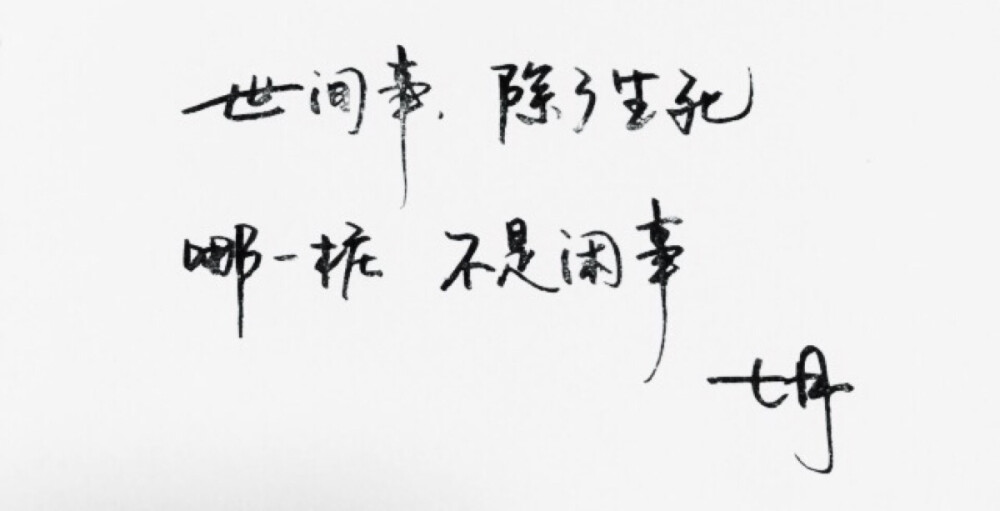 世间事，除了生死
哪一桩 不是闲事
七月